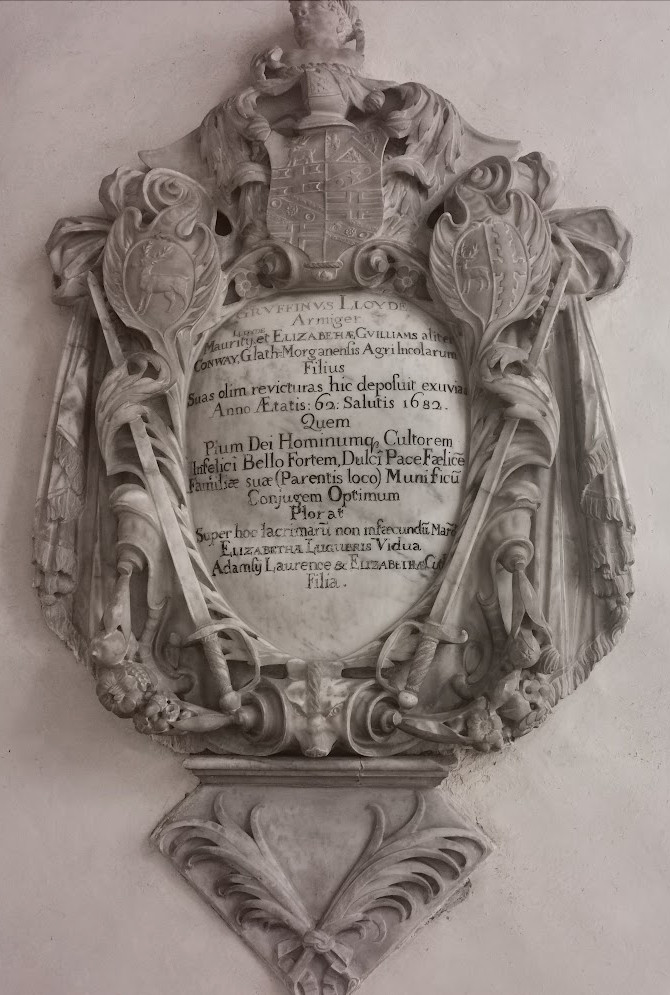 GRVFFINVS LLOYDE
Armiger
Mauritij et ELIZABETHÆ, GVILLIAMS alites
CONWAY, Glath-Morganensis Agri Incolarum
Filius
Suas olim revicturas hic deposuit exuvias
Anno Ætatis: 62. Salutis 1682.
Quem
Pium Dei Hominumq, Cultorem
Infelici Bello Fortem, Dulci Pace Fælicē
Familiæ suæ (Parentis loco) Munificū
Conjugem Optimum
Plorat
Super hoc lacrimarū non infæcundū Marm̄
ELIZABETHA LUGUBRIS Vidua
Adamsy Laurence & ELIZABETHÆ
Filia.